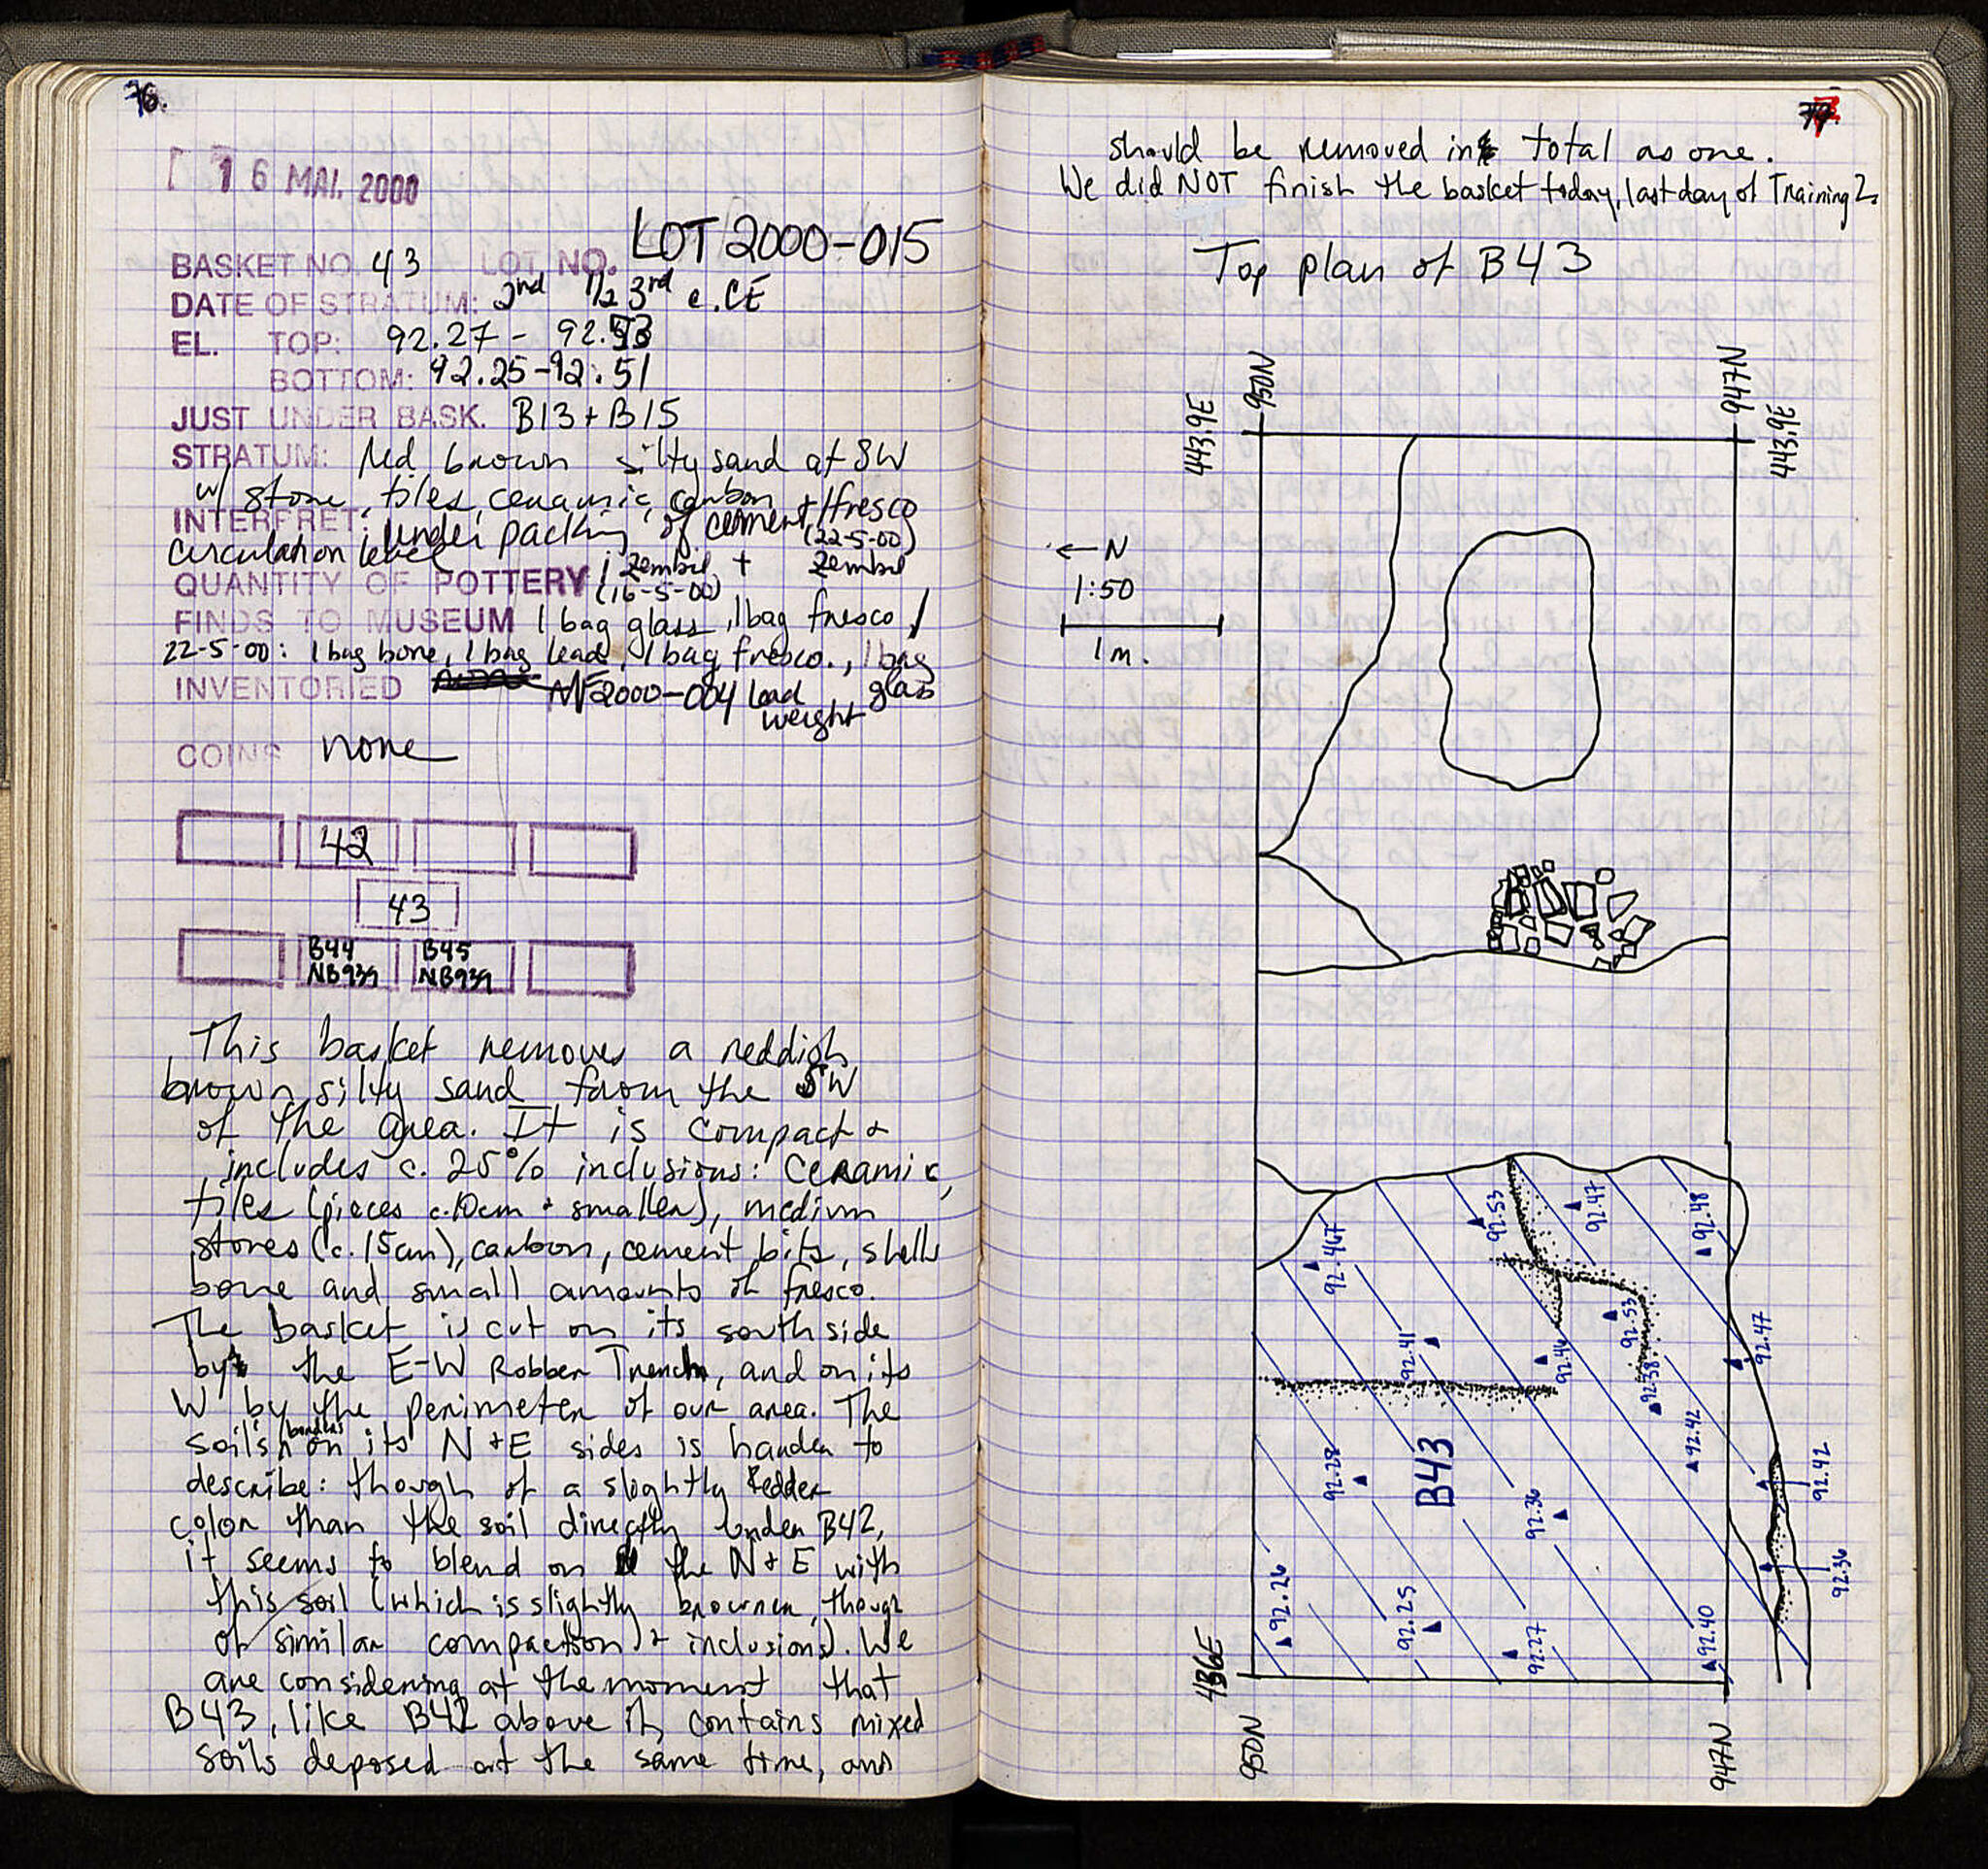 76.
16 MAI. 2000
LOT 2000-015
BASKET NO. 43 LOT NO.
DATE OF STRATUM: 2nd 1/2 3rd c. CE
EL. TOP: 92.27 - 92.53
BOTTOM: 92.25-92.51
JUST UNDER BASK. B13 + B15
STRATUM: Red brown silty sand at SW
w/ stone, tiles, ceramic, carbon + fresco
INTERPRET: Under packing of cement/
circulation level (22-5-00)
QUANTITY OF POTTERY 1 zembil + zembil
(16-5-00)
FINDS TO MUSEUM 1 bag glass, 1 bag fresco /
22-5-00: 1 bag bone, 1 bag lead, 1 bag fresco., 1 bag
glass
INVENTORIED MF2000-004 lead
weight
COINS none
42
43
B44 B45
NB939 NB939
This basket removes a reddish
brown silty sand from the SW
of the area. It is compact &
includes c. 25% inclusions: Ceramic,
tiles (pieces c.10cm + smaller), medium
stones (c. 15cm), carbon, cement bits, shells
bone and small amounts of fresco.
The basket is cut on its south side
by the E-W Robber Trench, and on its
W by the perimeter of our area. The
soil's borders on its N + E sides is harder to
describe: though of a slightly redder
color than the soil directly under B42,
it seems to blend on the N + E with
this soil (which is slightly browner, though
of similar compaction + inclusions). We
are considering at the moment that
B43, like B42 above it, contains mixed
soils deposed at the same time, and
77.
should be removed in total as one.
We did NOT finish the basket today, last day of Training 2.
Top plan of B43
950N
947N
443.9E
443.9E
← N
1:50
1 m.
92.53
92.47
92.48
92.467
92.53
92.41
92.46
92.47
92.38
92.42
92.28
B43
92.36
92.42
92.36
92.26
92.25
92.27
92.40
436E
950N
947N